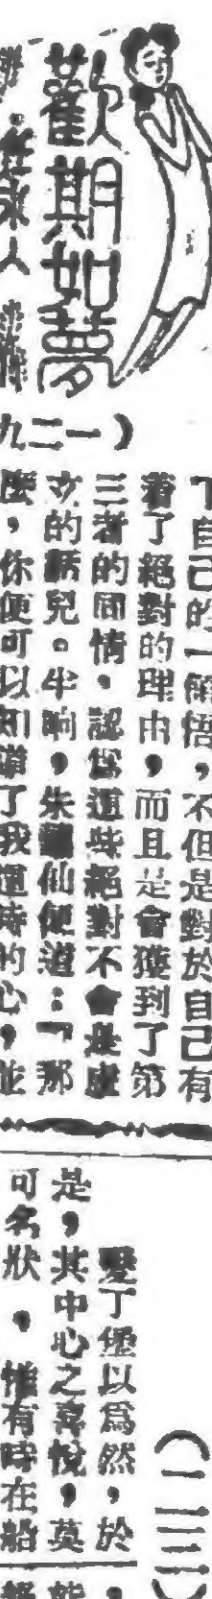 歡期如夢
(一二九
了自己的一解悟，不但是對於自己有
着了絕對的理由，而且是會獲到了第
三者的同情。認爲這些絕對不會是虛
的話兒。半晌，朱仙便道：『那
麼，你便可以知道了我這時的心，並
(一二三)
愛丁堡以爲然，於
是，其中心之喜悅，莫
可名狀，惟有時在船